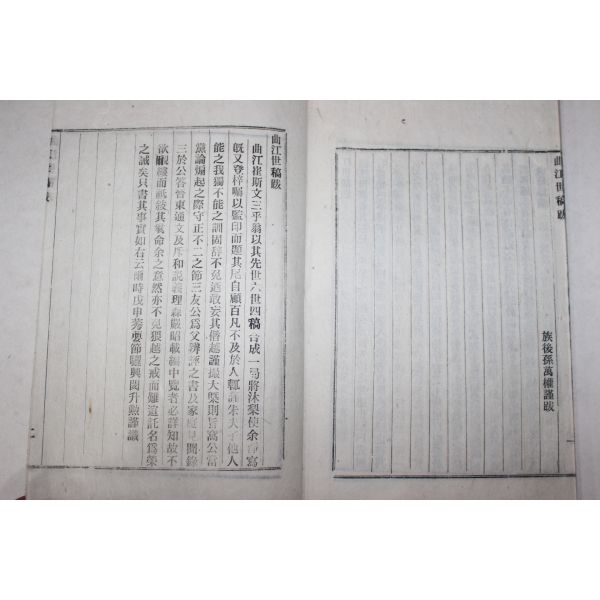 曲江世稿跋
族後孫萬權謹跋
曲江世稿跋
曲江崔斯文三乎翁以其先世六世四稿合成一局將沐梨使余淨寫
旣又登梓囑以監印而題其尾自顧百凡不及於人輒誦朱夫子他人
能之我獨不能之訓固辞不免敢妄其僭越謹撮大槩則旨窩公當
黨論煽起之際守正不二之節三友公爲父辨誣之書及家庭見聞錄
三於公答晉東通文及斥和說義理森嚴昭載編中覽者必詳知故不
欲覼縷而祗敍其氣命余之意然亦不免猥越之戒而難逭託名爲榮
之誠矣只書其事實如右云爾時戊申芳要節驪興閔升勲謹識